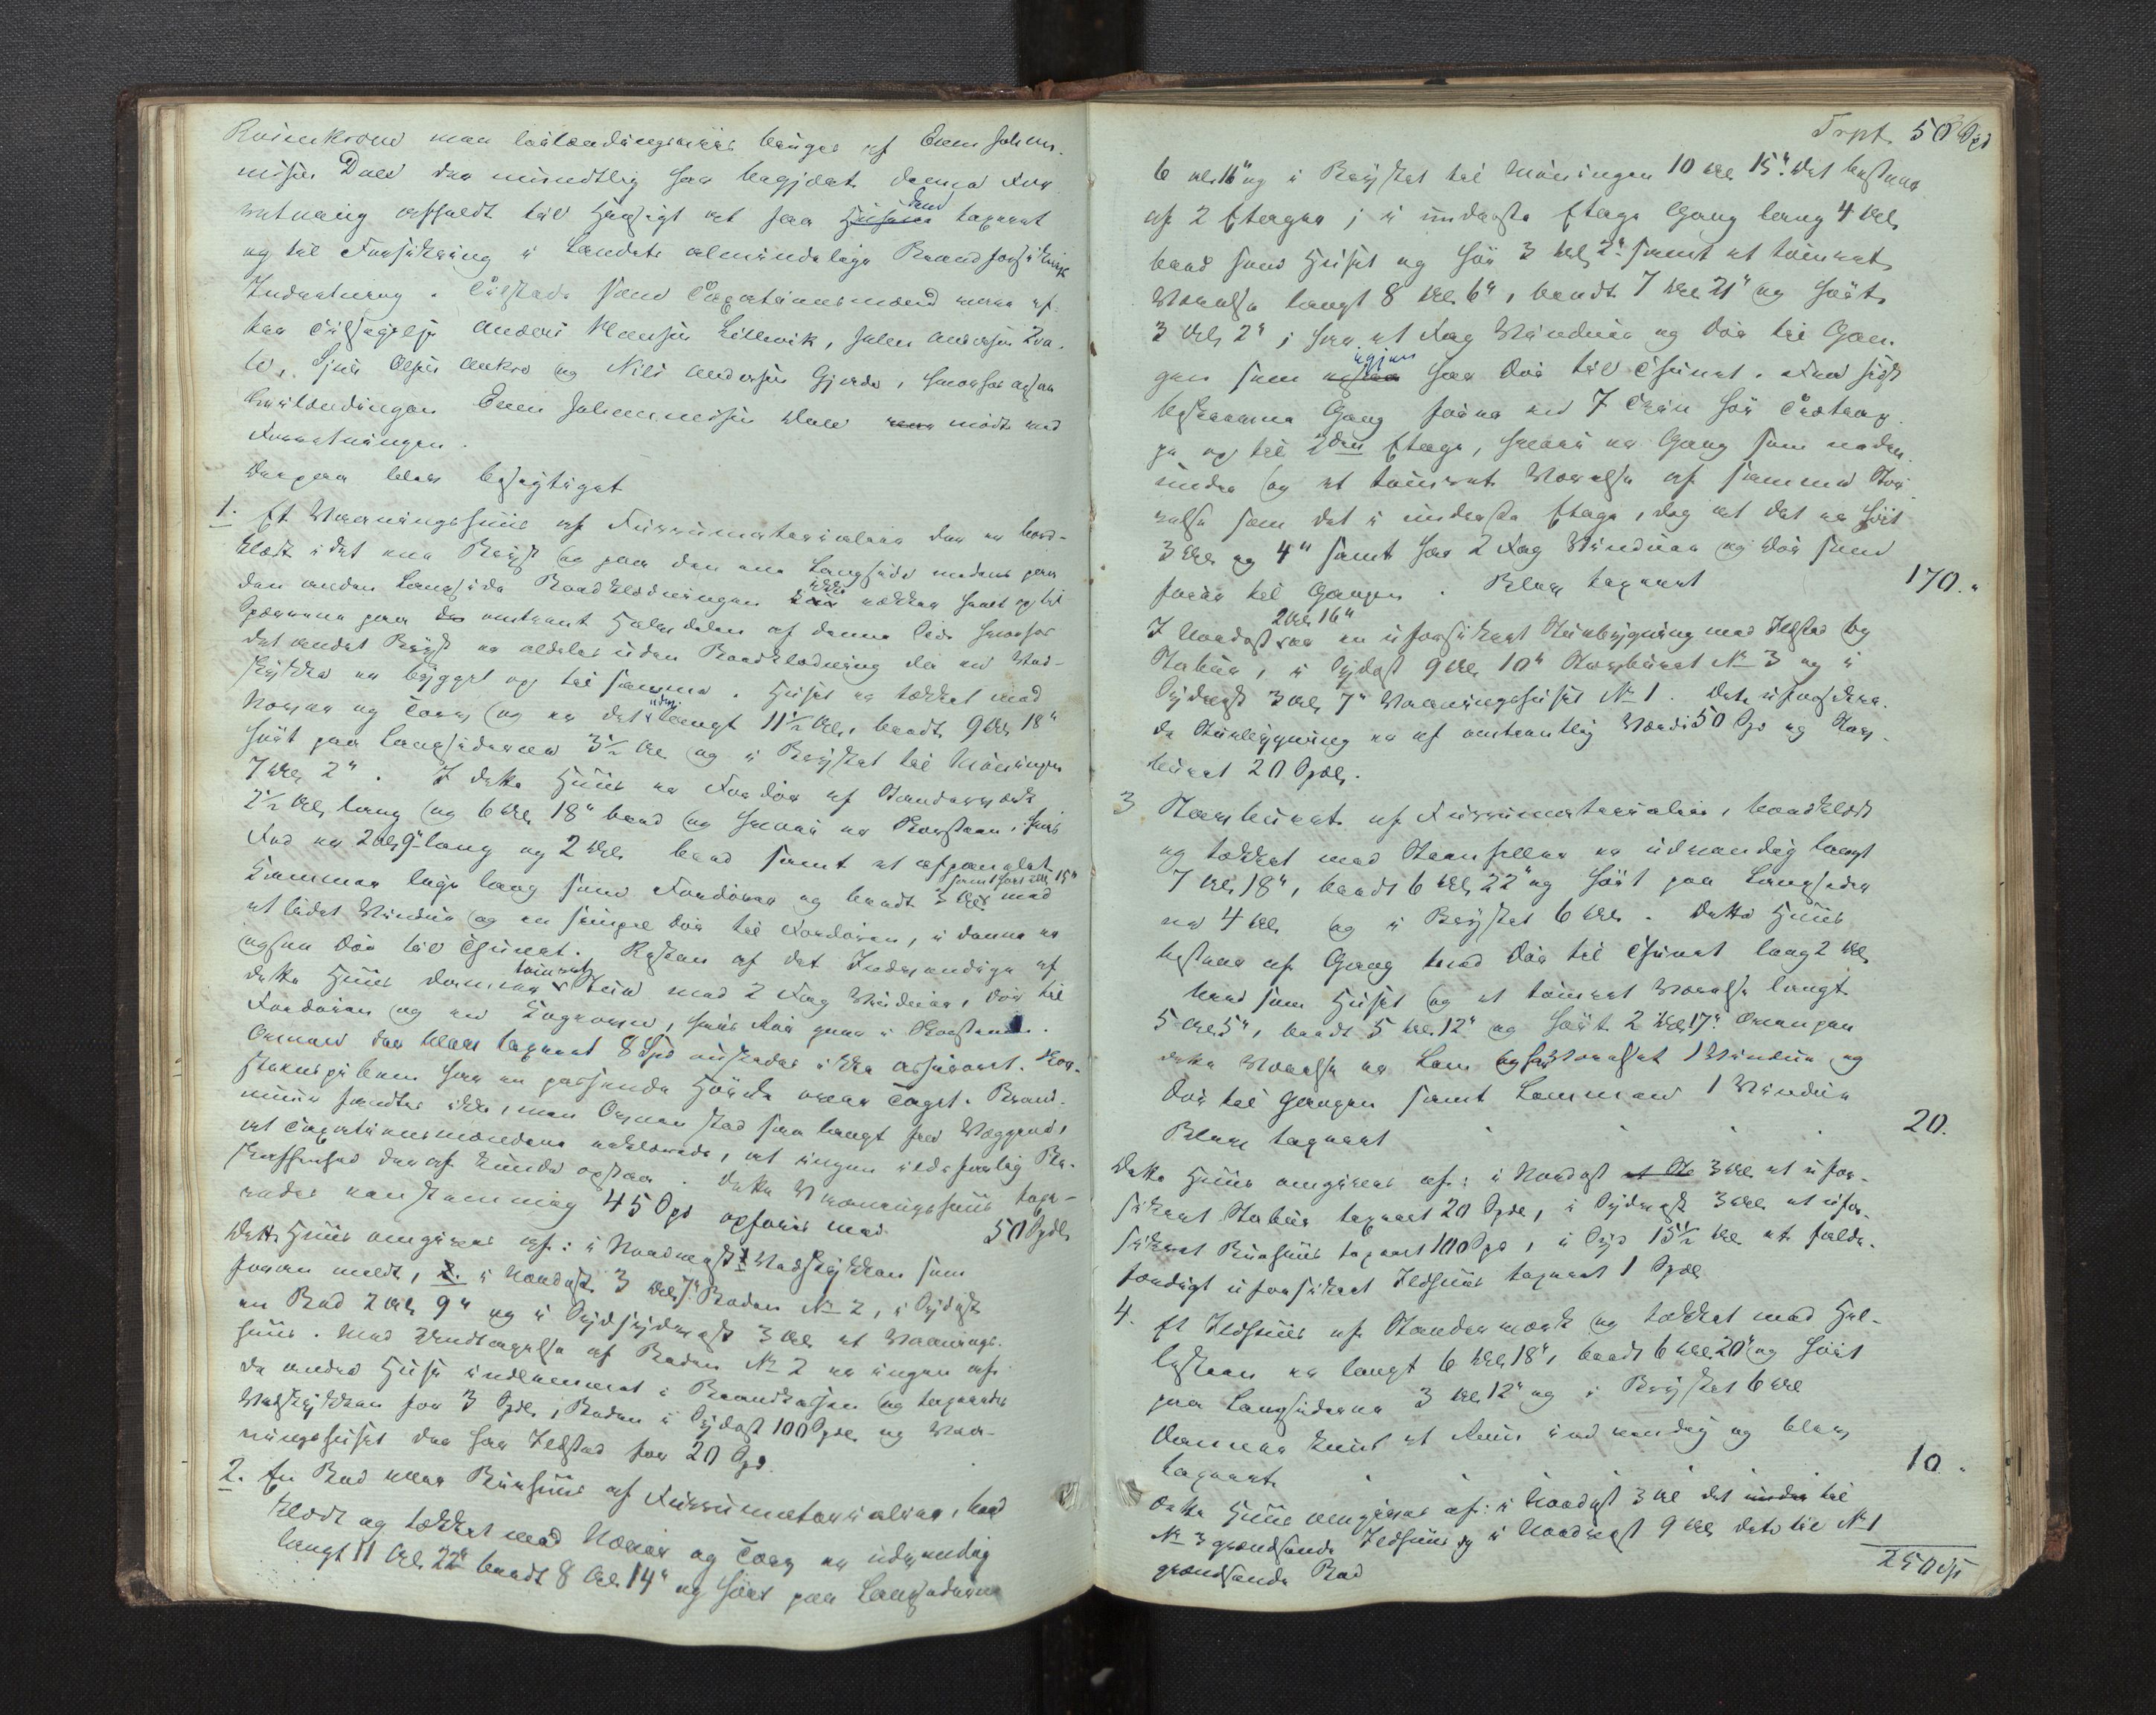 men Leilændingsviis bruges af Even Johan-
nesen Dale der mundtlig har begjært denne For-
retning afholdt til Hensigt at faa Husene dem taxeret
og til Forsikring i Landets almindelige Brandforsikrings
Indretning. Tilstede som Taxationsmænd vare ef-
ter Tilsigelse Anders Hansen Lillevik, Johan Andersen
Sjur Olsen og Nils Andersen Gjerde, hvorhos ogsaa
Leilændingen Even Johannesen Dale var mødt ved
Forretningen.
Derpaa blev besigtiget
1. Et Vaaningshuus af Furrumaterialier der er bord-
klædt i det ene Bryst og paa den ene Langside medens paa
den anden Langside Bordklædningen ikke rækker heelt op til
Sperrene paa omtrent Halvdelen af denne Side hvorhos
det andet Bryst er aldeles uden Bordklædning da en Ved-
skykkje er bygget op til samme. Huset er tækket med
Næver og Torv og er det udv. langt 11½ Al, bredt 9 Al 18"
høit paa Langsiderne 3½ Al og i Brystet til Møningen
7 Al 2". I dette Huus er Fordør af Standerværk
2½ Al lang og 6 Al 18" bred og hvori er Skorsteen, hvis
Fod er 2 Al 9" lang og 2 Al bred samt et afpanelet
Kammer lige lang som Fordøren og bredt 3 Al samt høit 15" med
et lidet Vindue og en simpel Dør til Fordøren, i denne er
ogsaa Dør til Tunet. Resten af det Indvendige af
dette Huus danner tømret Stue med 2 Fag Vinduer, Dør til
Fordøren og en Kogeovn, hvis Rør gaar i Skorstenen.
Ovnen der blev taxeret 8 Spd ønskedes ikke assureret. Skor-
steenspiben har en passende Høide over Taget. Brand-
muur fandtes ikke, men Ovnen stod saa langt fra Væggene,
at Taxationsmændene erklærede, at ingen ildsfarlig Be-
skaffenhed deraf kunde opstaa. Dette Vaaningshuus taxe-
redes eenstemmig 45 Spd opføres med 50 Spdl
Dette Huus omgives af: i Nordvest Vedskykkjen som
foran meldt, 2. i Nordost 3 Al 7" Boden No 2, i Sydost
en Bod 2 Al 9" og i Sydsydvest 3 Al et Vaanings-
huus. Med Undtagelse af Boden No 2 er ingen af
de andre Huse indlemmet i Brandkassen og taxeredes
Vedskykkjen for 3 Spdl, Boden i Sydost 100 Spdl og Vaa-
ningshuset der har Ildsted for 20 Spd.
2. En Bod eller Buehuus af Furrumaterialier, bord
klædt og tækket med Næver og Torv er udvendig
langt 11 Al 22" bredt 8 Al 14" og høit paa Langsiderne
Trpt. 50 Spd
6 Al 16" og i Brystet til Møningen 10 Al 15". Det bestaar
af 2 Etager; i underste Etage Gang lang 4 Al
bred som Huset og høi 3 Al 2" samt et tømret
Værelse langt 8 Al 6", bredt 7 Al 21" og høit
3 Al 2"; har et Fag Vinduer og Dør til Gan-
gen som igjen har Dør til Tunet. Fra sidst
bestemme Gang fører en 7 Trin høi Trætrap-
pe op til 2den Etage, hvori er Gang som neden-
under og et tømret Værelse af samme Stør-
relse som det i underste Etage, dog at det er høit
3 Al og 4" samt har 2 Fag Vinduer og Dør som
fører til Gangen. Blev taxeret 170. "
I Nordost 2 Al 16" er en uforsikret Steenbygning med Ildsted og
Stabur, i Sydost 9 Al 10" Storburet No 3 og i
Sydvest 3 Al 7" Vaaningshuset No 1. Det uforsikre-
de Steenbygning er af omtrentlig Værdi 50 Spd og Stor-
buret 20 Spdl.
3 Storburet af Furrumaterialier, bordklædt
og tækket med Steenheller er udvendig langt
7 Al 18", bredt 6 Al 22" og høit paa Langsider
ne 4 Al og i Brystet 6 Al. Dette Huus
bestaar af Gang med Dør til Tunet lang 2 Al
bred som Huset og et tømret Værelse langt
5 Al 5", bredt 5 Al 12" og høit 2 Al 17". Ovenpaa
dette Værelse er Lem og har Værelset 1 Vindue og
Dør til Gangen samt Lemmen 1 Vindue
Blev taxeret 20.
Dette Huus omgives af: i Nordost 3 Al et ufor-
sikret Stabur taxeret 20 Spdl, i Sydvest 3 Al et ufor-
sikret Buehuus taxeret 100 Spd, i Syd 15½ Al et falde-
færdigt uforsikret Ildhuus taxeret 1 Spdl
4. Et Ildhuus af Standerværk og tækket med Hel-
lesteen er langt 6 Al 18", bredt 6 Al 20" og høit
paa Langsiderne 3 Al 12" og i Brystet 6 Al
Danner kuns et Rum indvendig og blev
taxeret 10 "
Dette Huus omgives af: i Nordost 3 Al det under til
No 3 grændsende Ildhuus og i Nordvest 9 Al det til No 1
grændsende Bod
250 Sp